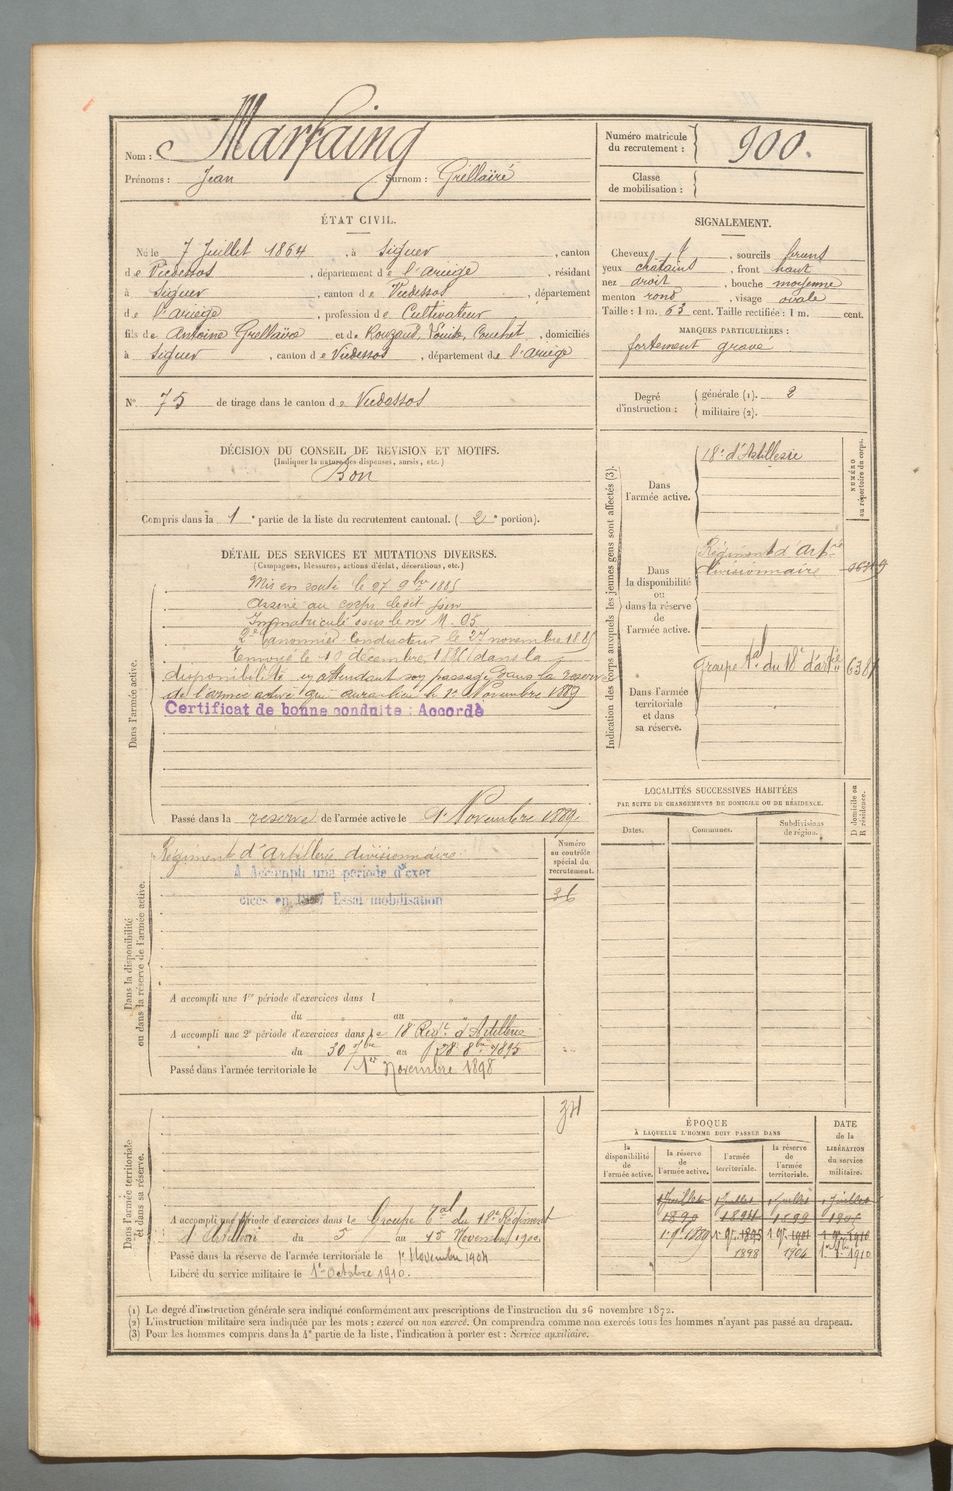 Nom : Marfaing
Prénoms : Jean Surnom : Grellaïré
Numéro matricule du recrutement : 900.
Classe de mobilisation :
ÉTAT CIVIL.
Né le 7 Juillet 1864, à Siguer, canton
de Vicdessos, département de l'ariège, résidant
à Siguer, canton de Vicdessos, département
de l'ariège, profession de Cultivateur
fils de Antoine Grellaïré et de Rouzaud, Couchet, domiciliés
à Siguer, canton de Vicdessos, département de l'ariège
N° 75 de tirage dans le canton de Vicdessos
SIGNALEMENT.
Cheveux, sourcils bruns
yeux chatains, front haut
nez droit, bouche moyenne
menton rond, visage ovale
Taille : 1 m. 63 cent. Taille rectifiée : 1 m. cent.
MARQUES PARTICULIÈRES :
fortement gravé
Degré d'instruction : générale (1). 2
militaire (2).
DÉCISION DU CONSEIL DE REVISION ET MOTIFS.
(Indiquer la nature des dispenses, sursis, etc.)
Bon
Compris dans la 1e partie de la liste du recrutement cantonal. (2e portion).
DÉTAIL DES SERVICES ET MUTATIONS DIVERSES.
(Campagnes, blessures, actions d'éclat, décorations, etc.)
Dans l'armée active.
Mis en route le 27 9bre 1885
au corps le dit jour
Immatriculé sous le no
2e Canonnier Conducteur le 27 novembre 1885
Envoyé le 10 décembre 1886 dans la
disponibilité en attendant son passage dans la réserve
de l'armée active qui aura lieu le 1er Novembre 1889
Certificat de bonne conduite : Accordé
Passé dans la reserve de l'armée active le 1er Novembre 1889.
Indication des corps auxquels les jeunes gens sont affectés (3).
NUMÉRO au répertoire du corps.
Dans l'armée active.
18e d'Artillerie
Dans la disponibilité ou dans la réserve de l'armée active.
Régiment d'Artie
divisionnaire
Dans l'armée territoriale et dans sa réserve.
Groupe tal du 18e d'artie
Dans la disponibilité ou dans la réserve de l'armée active.
Numéro au contrôle spécial du recrutement.
Régiment d'Artillerie divisionnaire
A Accompli une période d'exer
cices en 1887 Essai mobilisation
36
A accompli une 1re période d'exercices dans l
du au
A accompli une 2e période d'exercices dans le 18e Regt d'Artillerie
du 30 7bre au 28 8bre 1895
Passé dans l'armée territoriale le 1er Novembre 1898
LOCALITÉS SUCCESSIVES HABITÉES
PAR SUITE DE CHANGEMENTS DE DOMICILE OU DE RÉSIDENCE.
Dates. Communes. Subdivisions de région. D domicile ou R résidence.
Dans l'armée territoriale et dans sa réserve.
A accompli une période d'exercices dans le Groupe tal du 18e Régiment
d'Artillerie du 5 au 15 Novembre 1900
Passé dans la réserve de l'armée territoriale le 1er Novembre 1904
Libéré du service militaire le 1er Octobre 1910.
ÉPOQUE
À LAQUELLE L'HOMME DOIT PASSER DANS
la disponibilité de l'armée active. la réserve de l'armée active. l'armée territoriale. la réserve de l'armée territoriale.
DATE de la LIBÉRATION du service militaire.
1 Juillet 1 Juillet 1 Juillet 1 Juillet
1898 1904
(1) Le degré d'instruction générale sera indiqué conformément aux prescriptions de l'instruction du 26 novembre 1872.
(2) L'instruction militaire sera indiquée par les mots : exercé ou non exercé. On comprendra comme non exercés tous les hommes n'ayant pas passé au drapeau.
(3) Pour les hommes compris dans la 4e partie de la liste, l'indication à porter est : Service auxiliaire.